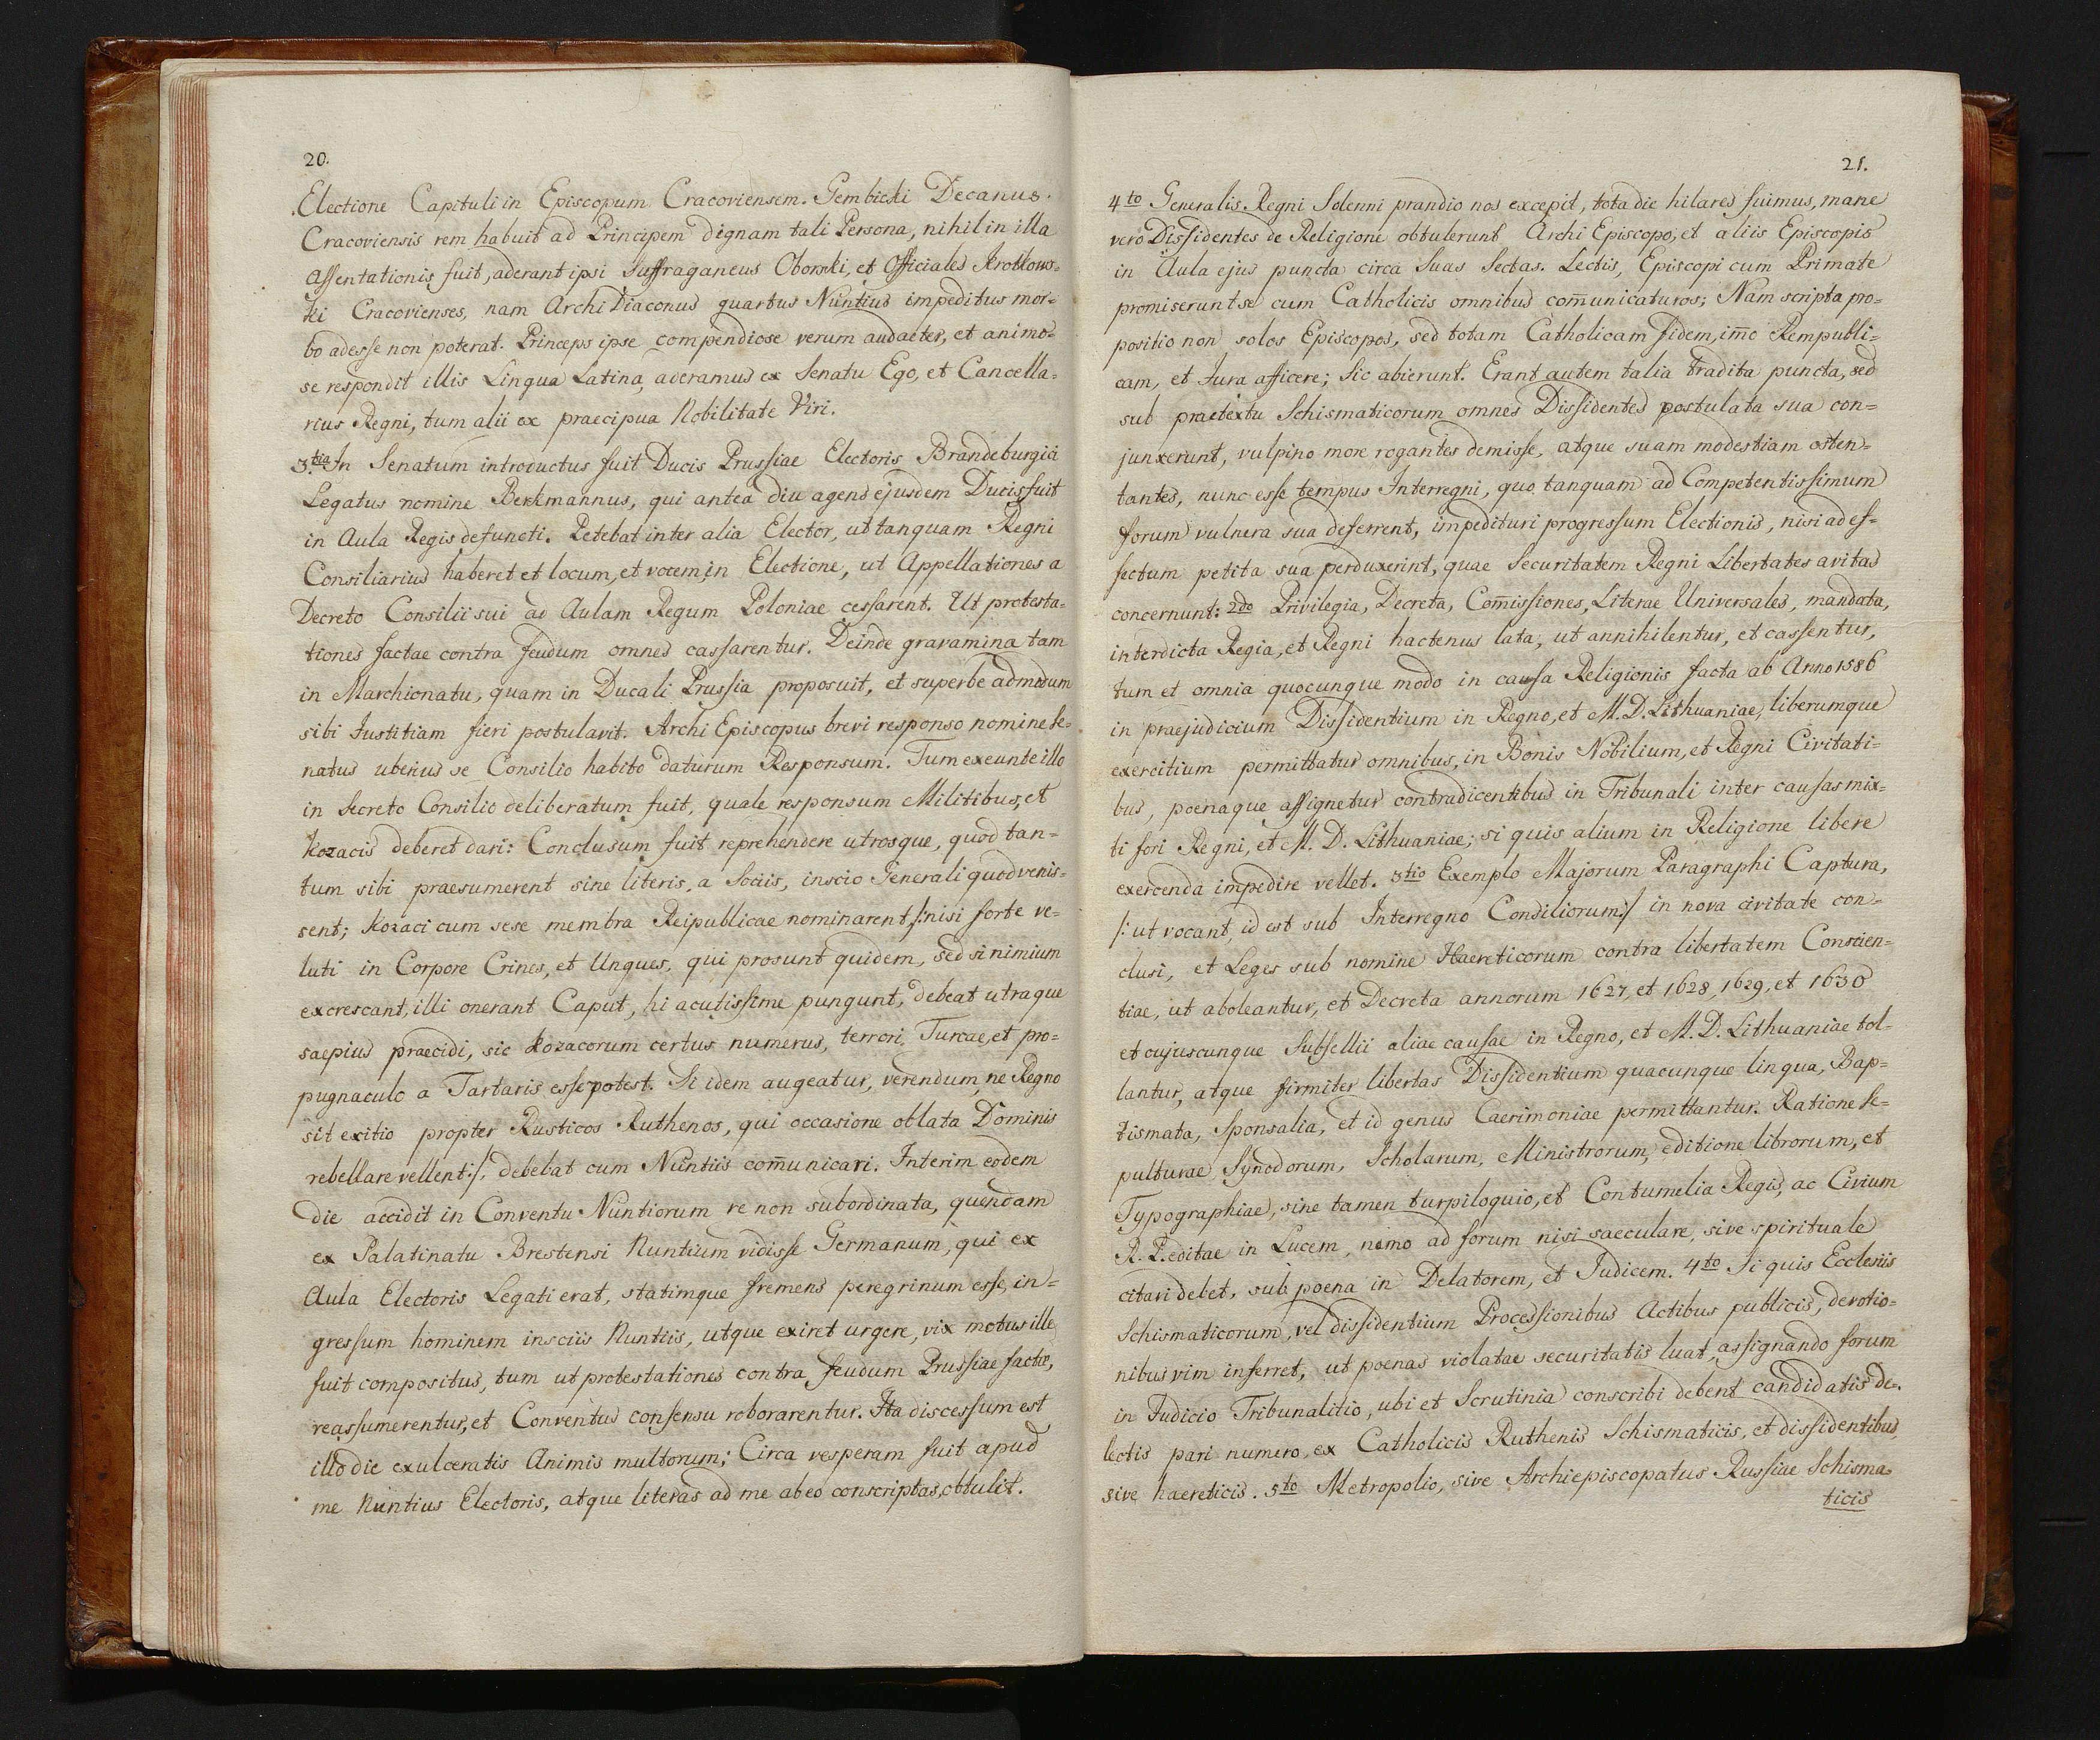 20.
Electione Capituli in Episcopum Cracoviensem. Gembicki Decanus
Cracoviensis rem habuit ad Principem dignam tali Persona, nihil in illa
assentationis fuit, aderant ipsi Suffraganeus Oborski, et Officiales Krotkows=
ki Cracovienses, nam Archi Diaconus quartus Nuntius impeditus mor=
bo adesse non poterat. Princeps ipse compendiose verum audacter, et animo=
se respondit illis Lingua Latina, aderamus ex Senatu Ego, et Cancella=
rius Regni, tum alii ex praecipua Nobilitate Viri.
3tia In Senatum introductus fuit Ducis Prussiae Electoris Brandeburgici
Legatus nomine Berkmannus, qui antea diu agens ejusdem Ducis fuit
in Aula Regis defuncti. Petebat inter alia Elector, ut tanquam Regni
Consiliarius haberet et locum, et vocem in Electione, ut Appellationes a
Decreto Consilii sui ad Aulam Regum Poloniae cessarent. Ut protesta=
tiones factae contra feudum omnes cassarentur. Deinde gravamina tam
in Marchionatu, quam in Ducali Prussia proposuit, et superbe admodum
sibi Iustitiam fieri postulavit. Archi Episcopus brevi responso nomine Se=
natus uberius se Consilio habito daturum Responsum. Tum exeunte illo
in Secreto Consilio deliberatum fuit, quale responsum Militibus, et
Kozacis deberet dari: Conclusum fuit reprehendere utrosque, quod tan=
tum sibi praesumerent sine literis, a Sociis, inscio Generali quod venis=
sent; Kozaci cum sese membra Reipublicae nominarent /:nisi forte ve=
luti in Corpore Crines, et Ungues, qui prosunt quidem, sed si nimium
excrescant, illi onerant Caput, hi acutissime pungunt, debeat utraque
saepius praecidi, sic Kozacorum certus numerus, terrori, Turcae, et pro=
pugnaculo a Tartaris esse potest. Si idem augeatur, verendum, ne Regno
sit exitio propter Rusticos Ruthenos, qui occasione oblata Dominis
rebellare vellent:/. debebat cum Nuntiis com̄unicari. Interim eodem
die accidit in Conventu Nuntiorum re non subordinata, quendam
ex Palatinatu Brestensi Nuntium vidisse Germanum, qui ex
Aula Electoris Legati erat, statimque fremens peregrinum esse, in=
gressum hominem insciis Nuntiis, utque exiret urgere, vix motus ille
fuit compositus, tum ut protestationes contra feudum Prussiae factae,
reassumerentur, et Conventus consensu roborarentur. Ita discessum est
illo die exulceratis Animis multorum; Circa vesperam fuit apud
me Nuntius Electoris, atque literas ad me ab eo conscriptas, obtulit.
21.
4to Generalis Regni Solenni prandio nos excepit, tota die hilares fuimus, mane
vero Dissidentes de Religione obtulerunt Archi Episcopo, et aliis Episcopis
in Aula ejus puncta circa Suas Sectas. Lectis, Episcopi cum Primate
promiserunt se cum Catholicis omnibus com̄unicaturos; Nam scripta pro=
positio non solos Episcopos, sed totam Catholicam fidem, im̄o Rempubli=
cam, et Jura afficere; Sic abierunt. Erant autem talia tradita puncta, sed
sub praetextu Schismaticorum omnes Dissidentes postulata sua con=
junxerunt, vulpino more rogantes demisse, atque suam modestiam osten=
tantes, nunc esse tempus Interregni, quo tanquam ad Competentissimum
forum vulnera sua deferrent, impedituri progressum Electionis, nisi ad ef=
fectum petita sua perduxerint, quae Securitatem Regni Libertates avitas
concernunt: 2do Privilegia, Decreta, Com̄issiones, Literae Universales, mandata,
interdicta Regia, et Regni hactenus lata, ut annihilentur, et cassentur,
tum et omnia quocunque modo in causa Religionis facta ab Anno 1586
in praejudicium Dissidentium in Regno, et M. D. Lithuaniae, liberumque
exercitium permittatur omnibus, in Bonis Nobilium, et Regni Civitati=
bus, poenaque assignetur contradicentibus in Tribunali inter causas mix=
ti fori Regni, et M. D. Lithuaniae; si quis alium in Religione libere
exercenda impedire vellet. 3tio Exemplo Majorum Paragraphi Captura,
/: ut vocant, id est sub Interregno Condiliorum:/ in nova civitate con=
clusi, et Leges sub nomine Haereticorum contra libertatem Conscien=
tiae, ut aboleantur, et Decreta annorum 1627, et 1628, 1629, et 1630
et cujuscunque Subsellii aliae causae in Regno, et M. D. Lithuaniae tol=
lantur, atque firmiter libertas Dissidentium quacunque lingua, Bap=
tismata, Sponsalia, et id genus Caerimoniae permittantur. Ratione Se=
pulturae Synodorum, Scholarum, Ministrorum, editione librorum, et
Typographiae, sine tamen turpiloquio, et Contumelia Regis, ac Civium
R. P. editae in Lucem, nemo ad forum nisi saeculare, sive spirituale
citari debet, sub poena in Delatorem, et Judicem. 4to Si quis Ecclesiis
Schismaticorum, vel dissidentium Processionibus Actibus publicis, devotio=
nibus vim inferret, ut poenas violatae securitatis luat, assignando forum
in Judicio Tribunalitio, ubi et Scrutinia conscribi debent candidatis de=
lectis pari numero, ex Catholicis Ruthenis Schismaticis, et dissidentibus,
sive haereticis. 5to Metropolio, sive Archiepiscopatus Russiae Schisma=
ticis